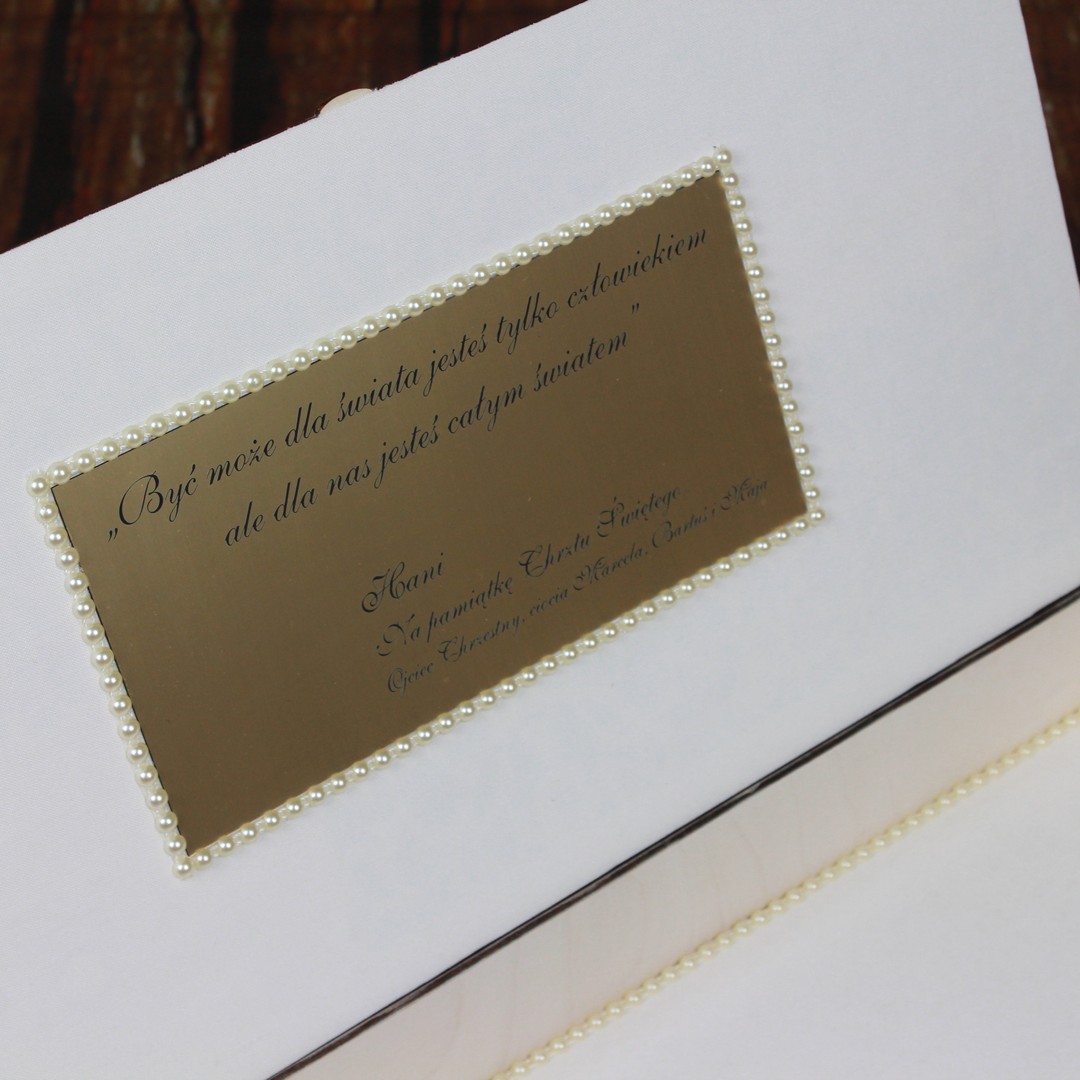 „Być może dla świata jesteś tylko człowiekiem
ale dla nas jesteś całym światem”
Hani
Na pamiątkę Chrztu Świętego
Ojciec Chrzestny, ciocia Marcela, Bartuś i Maja